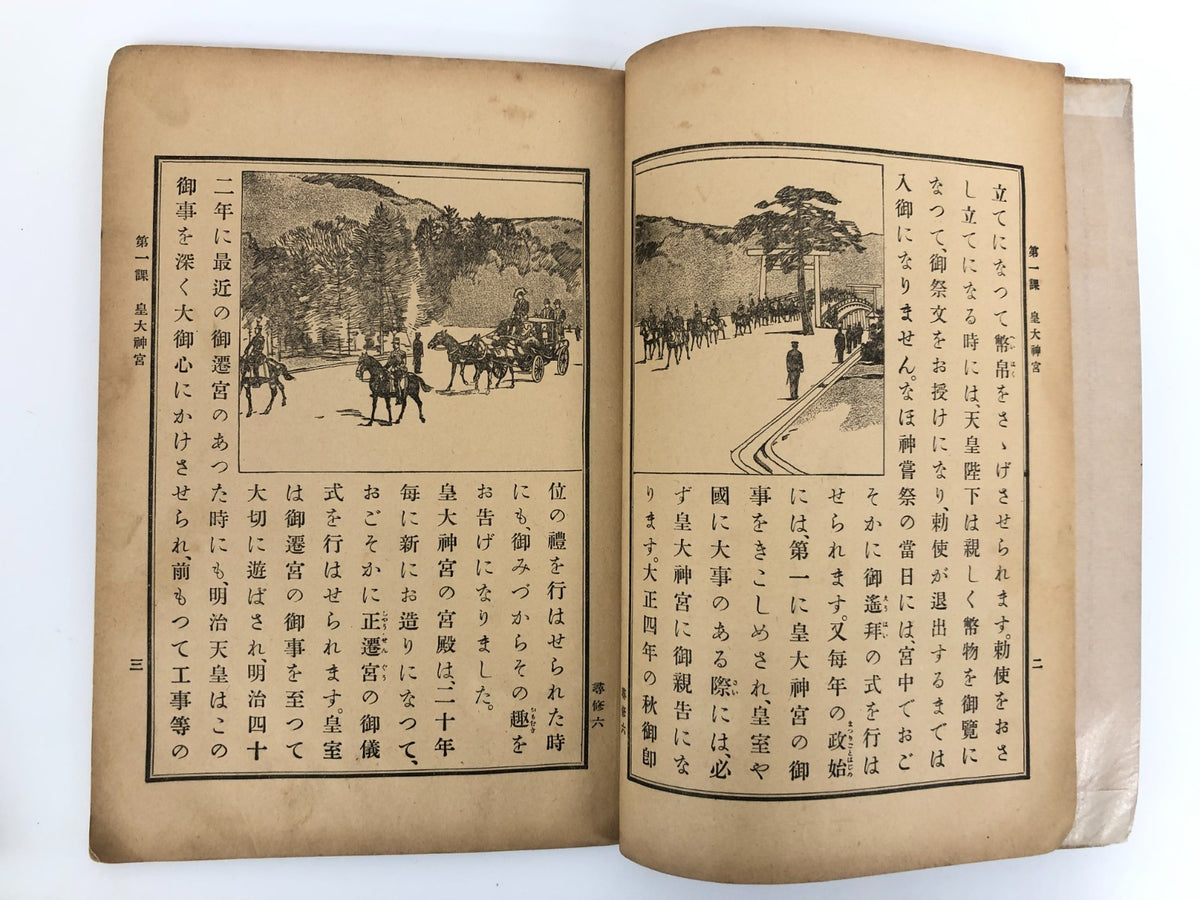 第一課 皇大神宮
二
立てになつて幣帛をさゝげさせられます。勅使をおさ
し立てになる時には、天皇陛下は親しく幣物を御覽に
なつて、御祭文をお授けになり、勅使が退出するまでは
入御になりません。なほ神嘗祭の當日には、宮中でおご
そかに御遙拜の式を行は
せられます。又毎年の政始
には、第一に皇大神宮の御
事をきこしめされ、皇室や
國に大事のある際には、必
ず皇大神宮に御親告にな
ります。大正四年の秋御卽
尋修六
尋修六
位の禮を行はせられた時
にも、御みづからその趣を
お告げになりました。
皇大神宮の宮殿は、二十年
毎に新にお造りになつて、
おごそかに正遷宮の御儀
式を行はせられます。皇室
は御遷宮の御事を至つて
大切に遊ばされ、明治四十
二年に最近の御遷宮のあつた時にも、明治天皇はこの
御事を深く大御心にかけさせられ、前もつて工事等の
第一課 皇大神宮
三